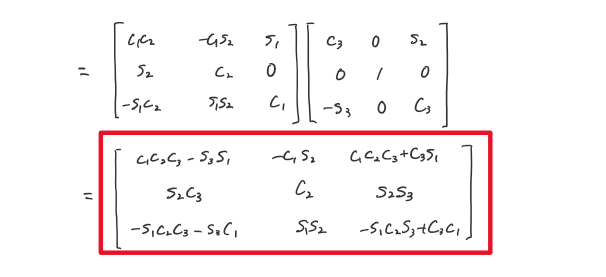 = [ c₁c₂ -c₁s₂ s₁ ] [ c₃ 0 s₂ ]
[ s₂ c₂ 0 ] [ 0 1 0 ]
[ -s₁c₂ s₁s₂ c₁ ] [ -s₃ 0 c₃ ]
= [ c₁c₂c₃ - s₃s₁ -c₁s₂ c₁c₂c₃+c₃s₁ ]
[ s₂c₃ c₂ s₂s₃ ]
[ -s₁c₂c₃ - s₃c₁ s₁s₂ -s₁c₂s₃+c₃c₁ ]